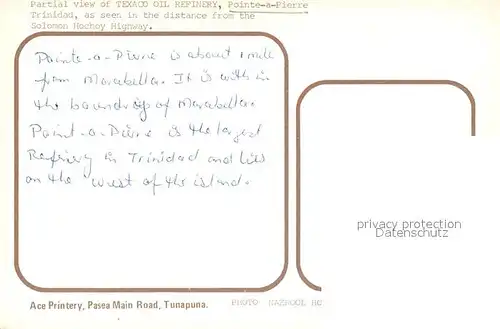 Partial view of TEXACO OIL REFINERY, Pointe-a-Pierre
Trinidad, as seen in the distance from the
Solomon Hochoy Highway.
Pointe-a-Pierre is about 1 mile
from Marabella. It is with in
the boundry of Marabella.
Point-a-Pierre is the largest
Refinery in Trinidad and lies
on the West of the island.
privacy protection
Datenschutz
Ace Printery, Pasea Main Road, Tunapuna.
PHOTO NAZROOL